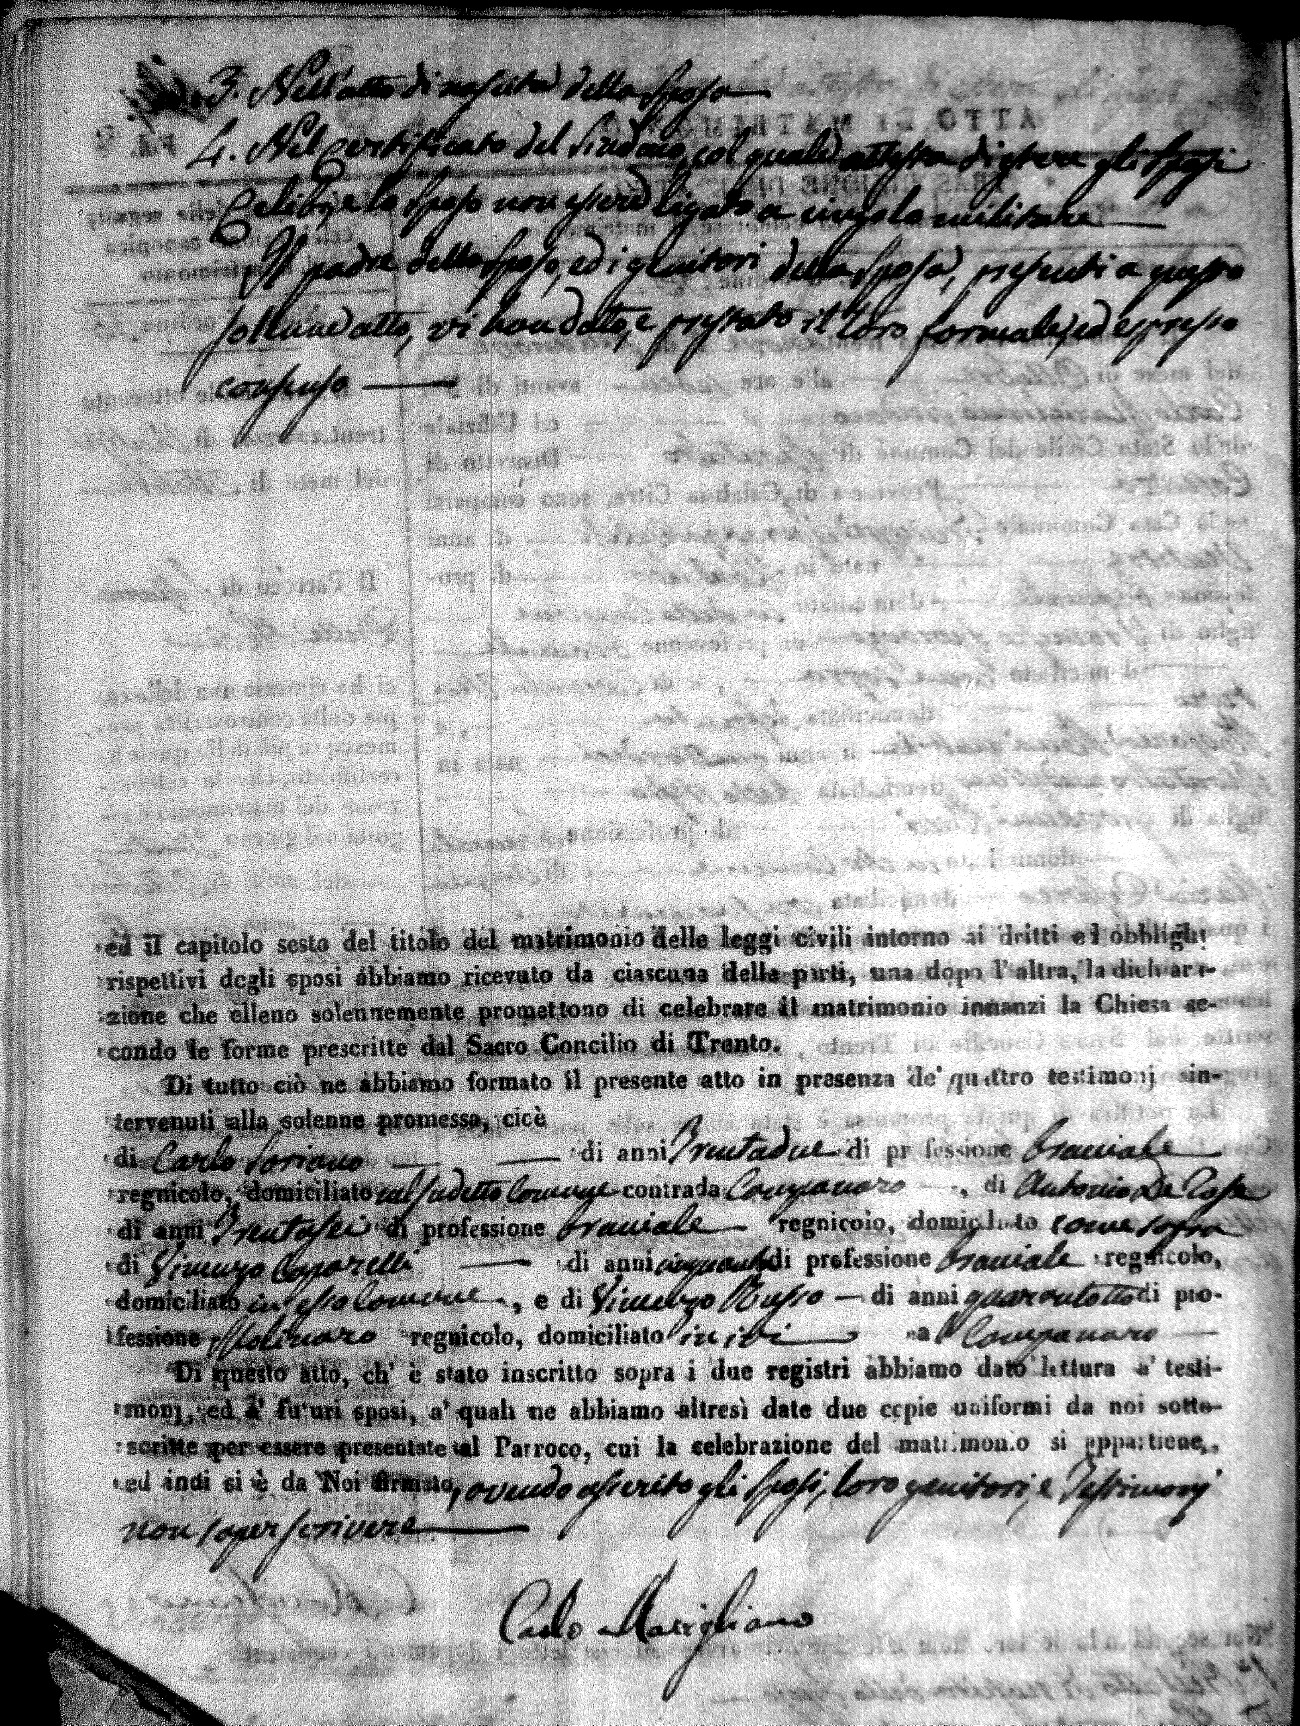 3. Nell'atto di nascita della Sposa
4. Nel Certificato del Sindaco, col quale attesta di essere gli Sposi
Celibi, e lo Sposo non essere legato a vincolo militare
Il padre dello Sposo, ed i genitori della Sposa, presenti a questo
sollenne atto, vi han dato, e prestato il loro formale, ed espresso
consenso
ed il capitolo sesto del titolo del matrimonio delle leggi civili intorno ai dritti ed obblighi
rispettivi degli sposi abbiamo ricevuto da ciascuna delle parti, una dopo l'altra, la dichiara-
zione che elleno solennemente promettono di celebrare il matrimonio innanzi la Chiesa se-
condo le forme prescritte dal Sacro Concilio di Trento.
Di tutto ciò ne abbiamo formato il presente atto in presenza de' quattro testimonj in-
tervenuti alla solenne promessa, cicè
di Carlo Soriano di anni Trentadue di professione bracciale
regnicolo, domiciliato nel sudetto Comune contrada Companaro, di Antonio De Rose
di anni Trentasei di professione bracciale regnicolo, domiciliato come sopra
di Vincenzo Caparelli di anni cinquanta di professione bracciale regnicolo,
domiciliato in esso Comune, e di Vincenzo Russo di anni quarantotto di pro-
fessione Molinaro regnicolo, domiciliato in ivi a Companaro
Di questo atto, ch' è stato inscritto sopra i due registri abbiamo dato lettura a' testi-
monj, ed a' futuri sposi, a' quali ne abbiamo altresì date due copie uniformi da noi sotto-
scritte per essere presentate al Parroco, cui la celebrazione del matrimonio si appartiene,
ed indi si è da Noi firmato, avendo asserito gli Sposi, loro genitori, e Testimonj
non saper scrivere
Carlo Marigliano